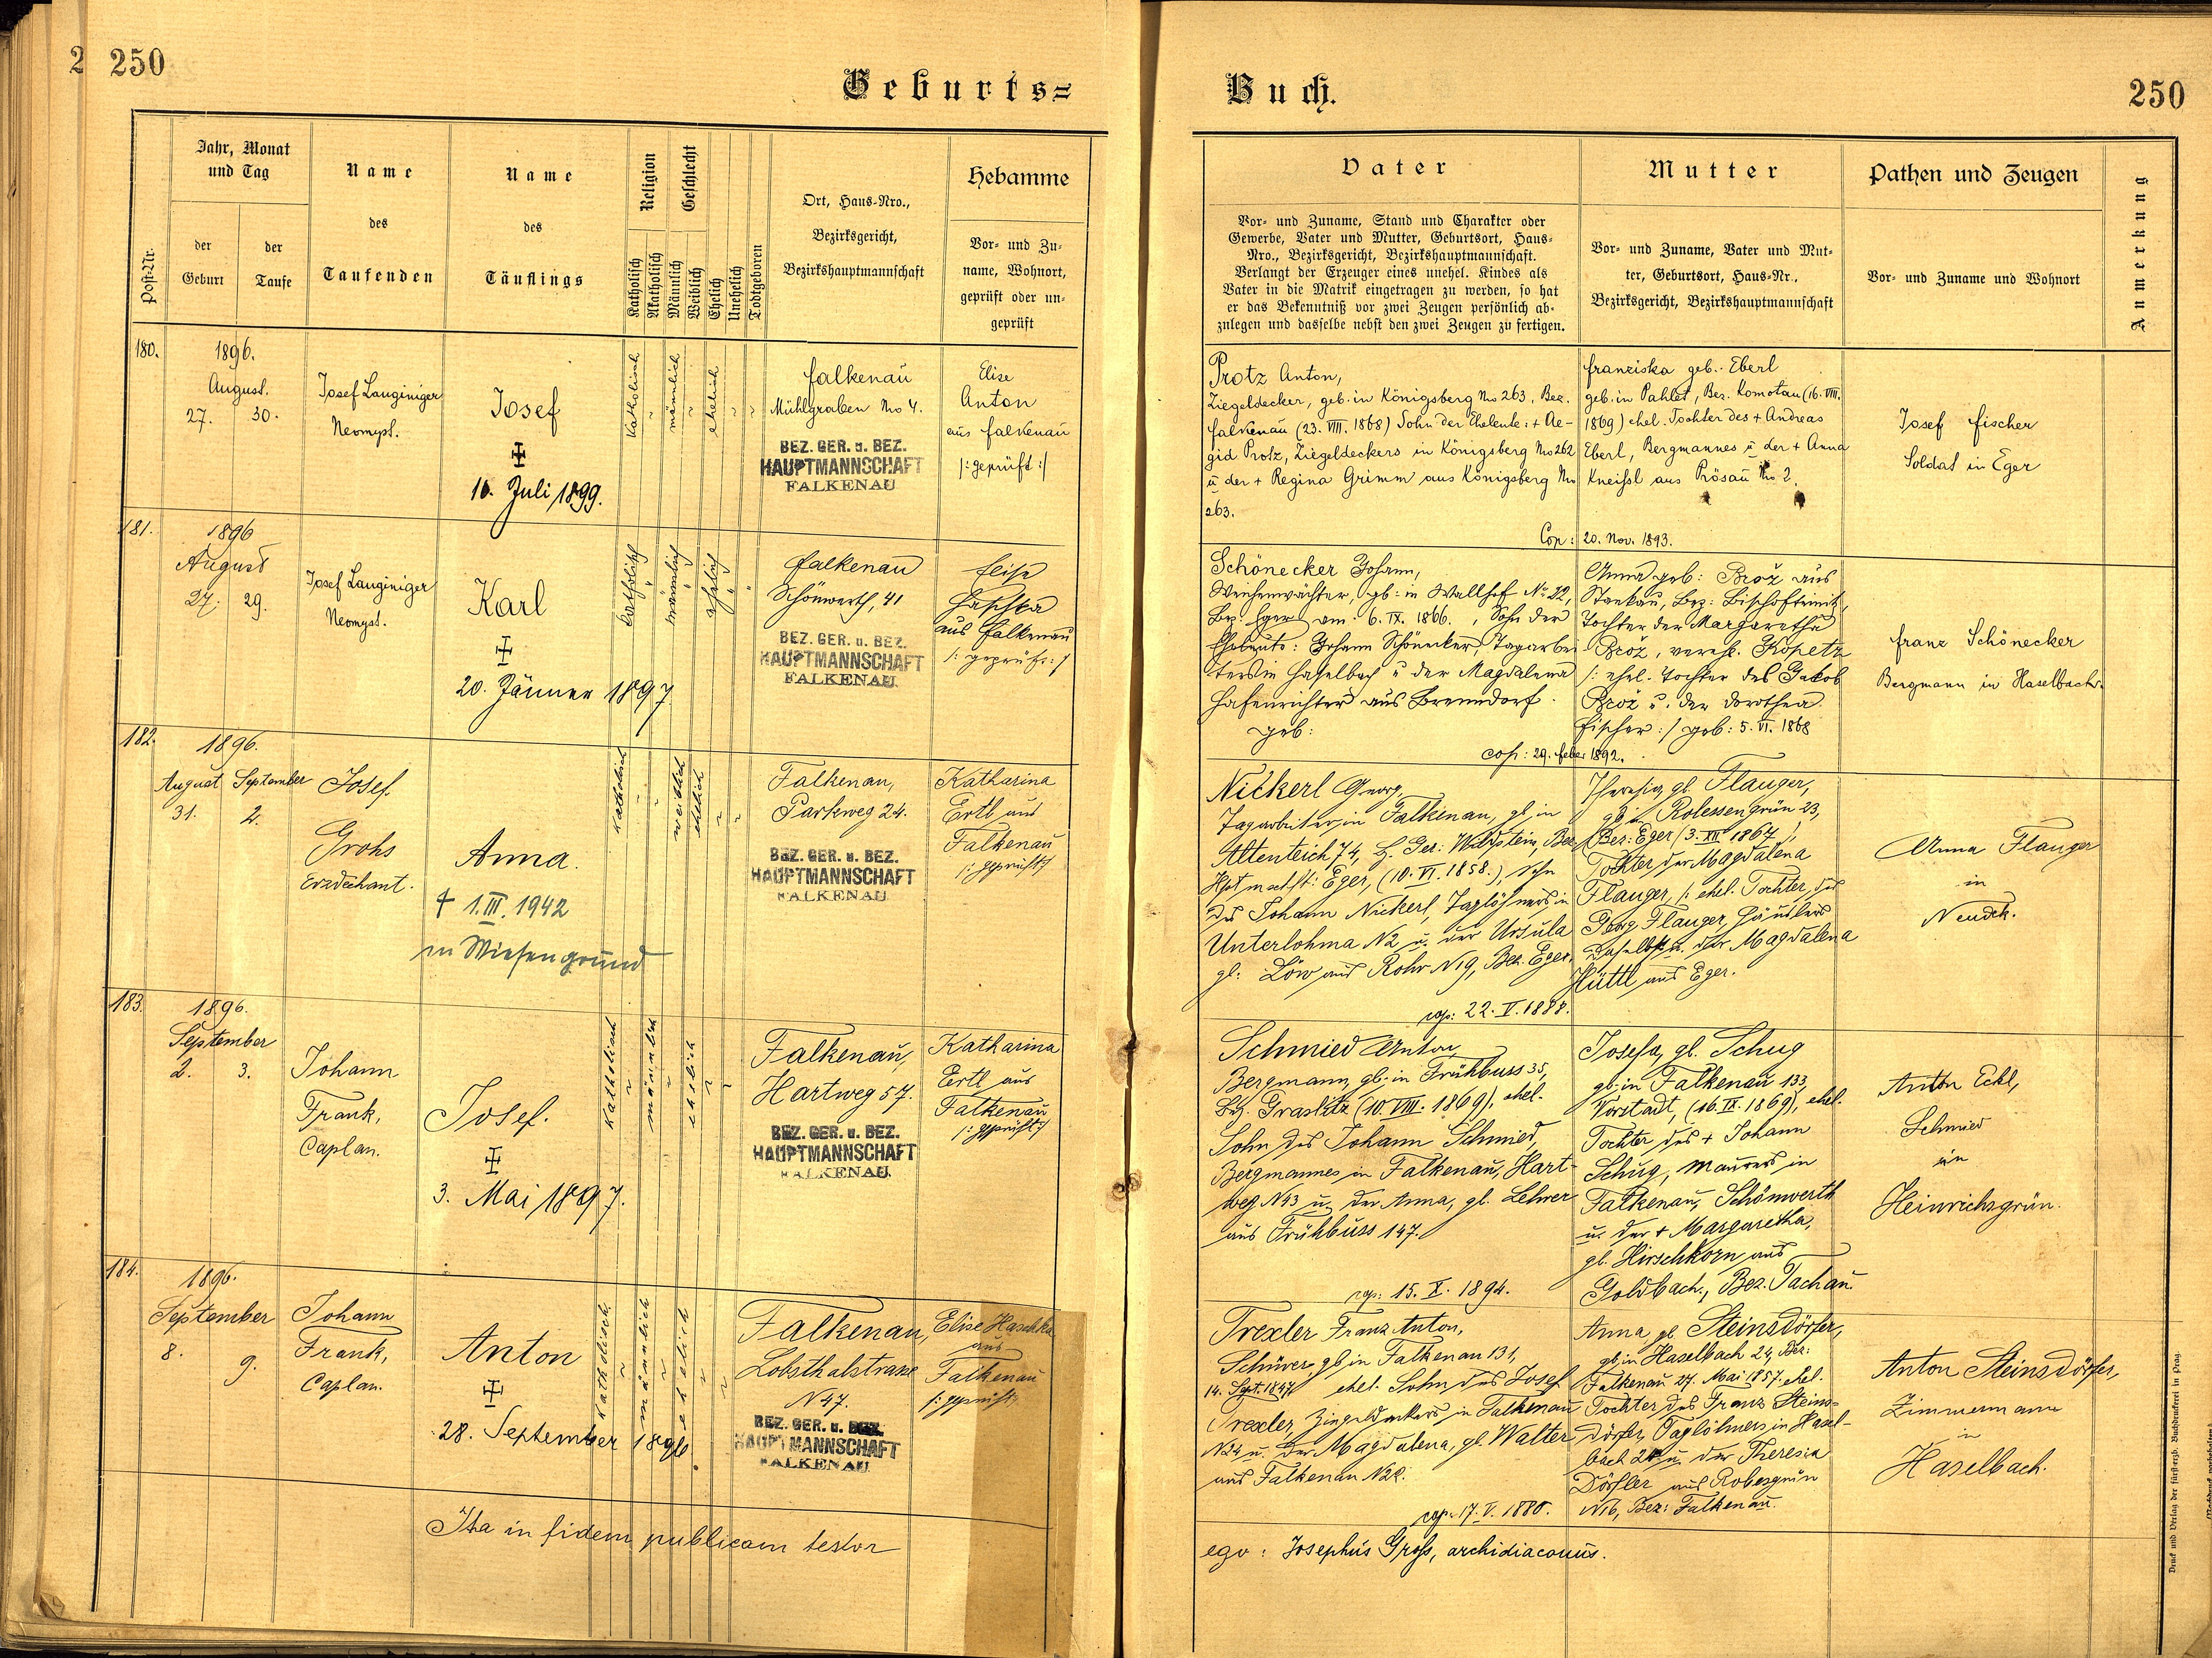 2 250
Geburts=
Buch.
250
Post-Nr.
Jahr, Monat
und Tag
der
Geburt
der
Taufe
Name
des
Taufenden
Name
des
Täuflings
Religion
Katholisch
Akatholisch
Geschlecht
Männlich
Weiblich
Ehelich
Unehelich
Todtgeboren
Ort, Haus-Nro.,
Bezirksgericht,
Bezirkshauptmannschaft
Hebamme
Vor- und Zu-
name, Wohnort,
geprüft oder un-
geprüft
Vater
Vor- und Zuname, Stand und Charakter oder
Gewerbe, Vater und Mutter, Geburtsort, Haus-
Nro., Bezirksgericht, Bezirkshauptmannschaft.
Verlangt der Erzeuger eines unehel. Kindes als
Vater in die Matrik eingetragen zu werden, so hat
er das Bekenntniß vor zwei Zeugen persönlich ab-
zulegen und dasselbe nebst den zwei Zeugen zu fertigen.
Mutter
Vor- und Zuname, Vater und Mut-
ter, Geburtsort, Haus-Nr.,
Bezirksgericht, Bezirkshauptmannschaft
Pathen und Zeugen
Vor- und Zuname und Wohnort
Anmerkung
180.
1896.
August.
27. 30.
Josef Lauginiger
Neomyst.
Josef
10. Juli 1899.
Katholisch
männlich
ehelich
Falkenau
Mühlgraben No 4.
BEZ. GER. u. BEZ.
HAUPTMANNSCHAFT
FALKENAU
Elise
Anton
aus Falkenau
/: geprüft :/
Protz Anton,
Ziegeldecker, geb. in Königsberg No 263, Bez.
Falkenau (23. VIII. 1868) Sohn der Eheleute: + Ae-
gid Protz, Ziegeldeckers in Königsberg No 262
u der + Regina Grimm aus Königsberg No
263.
Franziska geb. Eberl
geb. in Pahlet, Bez. Komotau (16. VIII.
1869) ehel. Tochter des + Andreas
Eberl, Bergmannes u der + Anna
Kneissl aus Prösau No 2.
Cop: 20. Nov. 1893.
Josef Fischer
Soldat in Eger
181.
1896
August
27. 29.
Josef Lauginiger
Neomyst.
Karl
20. Jänner 1897
katholisch
männlich
ehelich
Falkenau
Schönwerth, 41
BEZ. GER. u. BEZ.
HAUPTMANNSCHAFT
FALKENAU
Elise
Haschka
aus Falkenau
/: geprüft: /
Schönecker Johann,
Weichenwächter, geb: in Wallhof No 22,
Bez. Eger am 6. IX. 1866., Sohn der
Eheleute: Johann Schönecker, Tagarbei
ters in Haselbach u der Magdalena
Hafenrichter aus Brenndorf.
geb:
Anna geb: Brož aus
Stankau, Bez: Bischofteinitz,
Tochter der Margaretha
Brož, verehl. Kopetz
/: ehel. Tochter des Jakob
Brož u. der Dorothea
Fischer :/ geb: 5. VI. 1868
cop: 29. Feber 1892.
Franz Schönecker
Bergmann in Haselbach.
182.
1896.
August September
31. 2.
Josef
Grohs
Erzdechant.
Anna.
† 1. III. 1942
in Wiesengrund
Katholisch
weiblich
ehelich
Falkenau,
Parkweg 24.
BEZ. GER. u. BEZ.
HAUPTMANNSCHAFT
FALKENAU
Katharina
Ertl aus
Falkenau
/: geprüft :/
Nickerl Georg,
Tagarbeiter in Falkenau, gb. in
Altenteich 74, Bz. Ger: Wildstein, Bez
Hptmschft: Eger, (10. VI. 1858.), Sohn
des Johann Nickerl, Taglöhners in
Unterlohma N 2 u. der Ursula
gb: Löw aus Rohr N 19, Bez. Eger.
Theresia, gb. Flauger,
gb in Rolessengrün 23,
Bez: Eger (3. XII 1867),
Tochter der Magdalena
Flauger, /: ehel. Tochter des
Georg Flauger, Häuslers
daselbst u. der Magdalena
Hüttl aus Eger.
cop: 22. V. 1888.
Anna Flauger
in
Neudek.
183.
1896.
September
2. 3.
Johann
Frank,
Caplan.
Josef.
3. Mai 1897.
Katholisch
männlich
ehelich
Falkenau,
Hartweg 57.
BEZ. GER. u. BEZ.
HAUPTMANNSCHAFT
FALKENAU.
Katharina
Ertl aus
Falkenau
/: geprüft :/
Schmied Anton,
Bergmann, gb. in Frühbuss 35,
Bz. Graslitz (10. VIII. 1869), ehel.
Sohn des Johann Schmied,
Bergmannes in Falkenau, Hart-
weg N 43 u. der Anna, gb. Lehrer
aus Frühbuss 147.
Josefa, gb. Schug
gb. in Falkenau 133,
Vorstadt, (16. IX. 1869), ehel.
Tochter des + Johann
Schug, Maurers in
Falkenau, Schönwerth
u. der + Margaretha,
gb. Hirschkorn aus
Goldbach., Bez. Tachau.
cop: 15. X. 1894.
Anton Eckl,
Schmied
in
Heinrichsgrün.
184.
1896.
September
8. 9.
Johann
Frank,
Caplan.
Anton
28. September 1896.
Katholisch.
männlich
ehelich
Falkenau,
Lobsthalstrasse
N 47.
BEZ. GER. u. BEZ.
HAUPTMANNSCHAFT
FALKENAU
Elise Haschka
aus
Falkenau
/: geprüft :/
Trexler Franz Anton,
gb in Falkenau 131,
14. Sept. 1847 ehel. Sohn des Josef
Trexler, Ziegeldeckers in Falkenau
N 34 u. der Magdalena, gb. Walter
aus Falkenau N 22.
Anna, gb. Steinsdörfer,
gb in Haselbach 24, Bez:
Falkenau 27. Mai 1857. ehel.
Tochter des Franz Steins-
dörfer, Taglöhners in Hasel-
bach 24 u. der Theresia
Dörfler aus Robesgrün
N 16, Bez: Falkenau.
cop: 17. V. 1880.
Anton Steinsdörfer,
Zimmermann
in
Haselbach.
Ita in fidem publicam testor
ego: Josephus Grohs, archidiaconus.
Druck und Verlag der fürsterzb. Buchdruckerei in Prag.